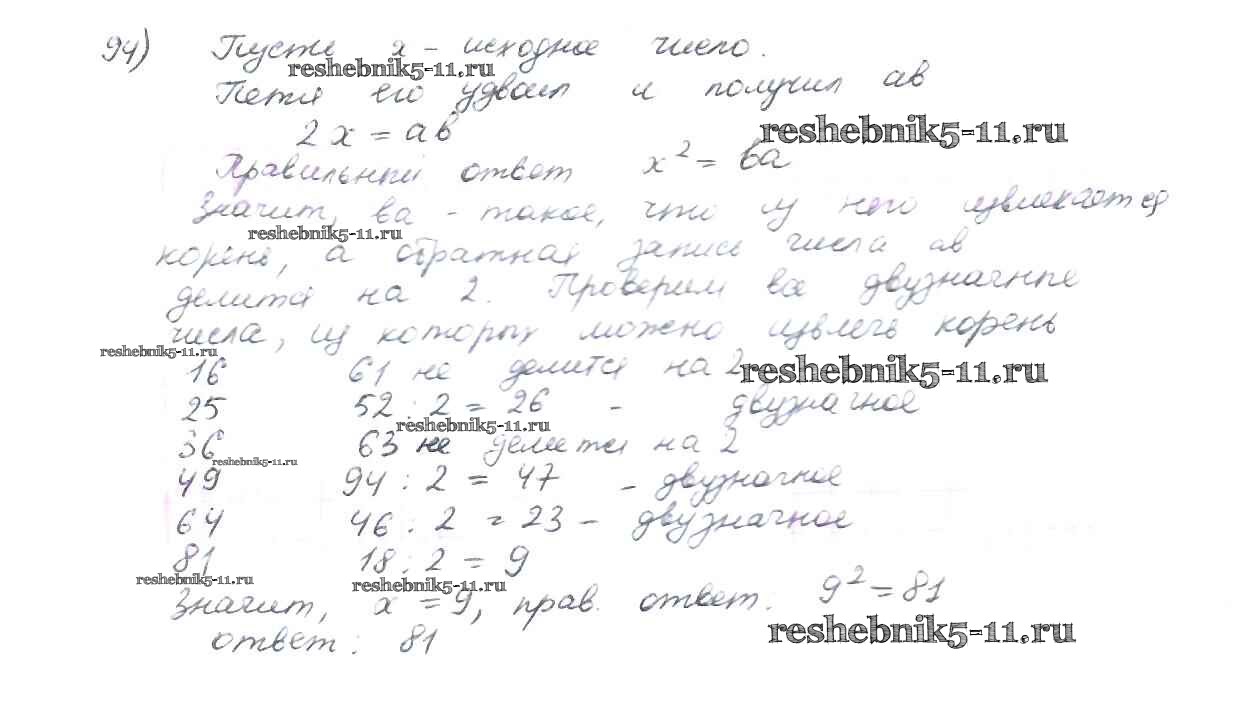 94) Пусть х - исходное число.
reshebnik5-11.ru
Петя его удвоил и получил ав
2х = ав
reshebnik5-11.ru
Правильный ответ х² = ва
Значит, ва - такое, что из него извлекается
reshebnik5-11.ru
корень, а обратная запись числа ав
делится на 2. Проверим все двузначные
числа, из которых можно извлечь корень
reshebnik5-11.ru
16 61 не делится на 2
reshebnik5-11.ru
25 52 : 2 = 26 - двузначное
reshebnik5-11.ru
36 63 не делится на 2
reshebnik5-11.ru
49 94 : 2 = 47 - двузначное
64 46 : 2 = 23 - двузначное
81 18 : 2 = 9
reshebnik5-11.ru
reshebnik5-11.ru
Значит, х = 9, прав. ответ: 9² = 81
reshebnik5-11.ru
ответ: 81